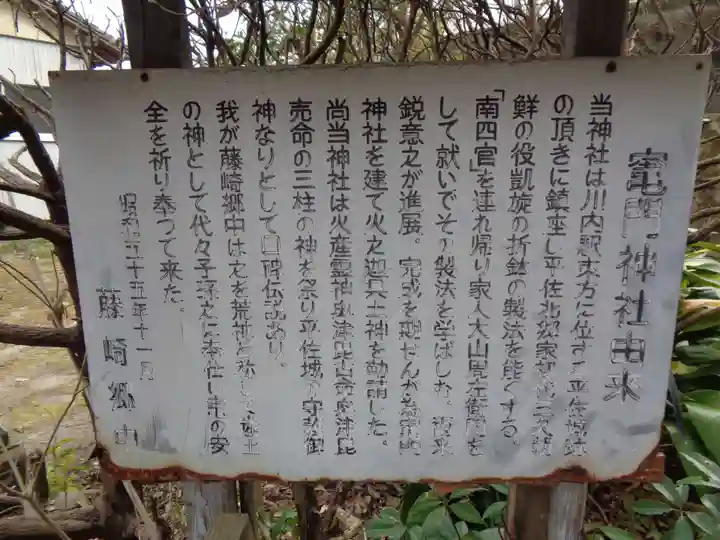 竈門神社由来
当神社は川内駅東方に位する平佐城跡
の頂きに鎮座し平佐北郷家
鮮の役凱旋の折鉄の製法を能くする。
「南四官」を連れ帰り家人大山
して就いてその製法を学ばした。 爾来
鋭意之が進展。完成を期せんが為
神社を建て火之迦具土神を勧請した。
尚当神社は火産霊神奥津比古命奥津比
売命の三柱の神を祭り平佐城の守護御
神なりとして口碑伝説あり。
我が藤崎郷中は之を荒神と称して
の神として代々子孫之に奉仕し来の安
全を祈り奉つて来た。
昭和五十五年十一月
藤崎郷中